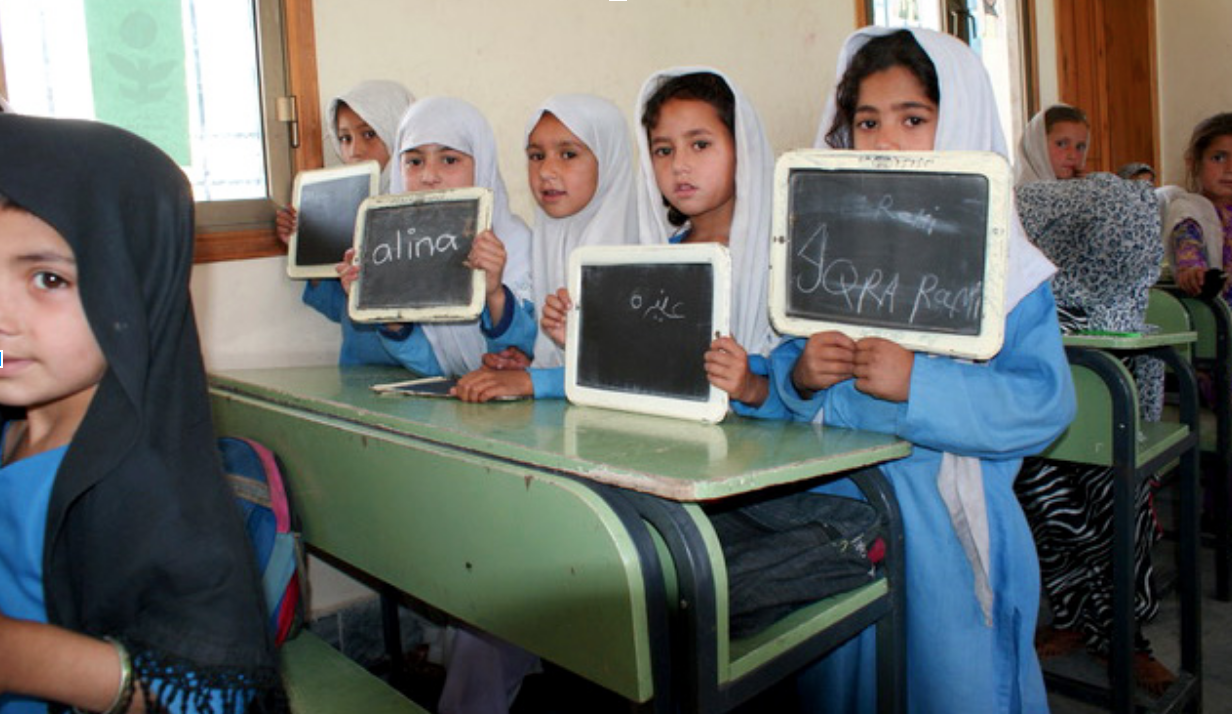 alina
عنیزه
Rani
IQRA Rani